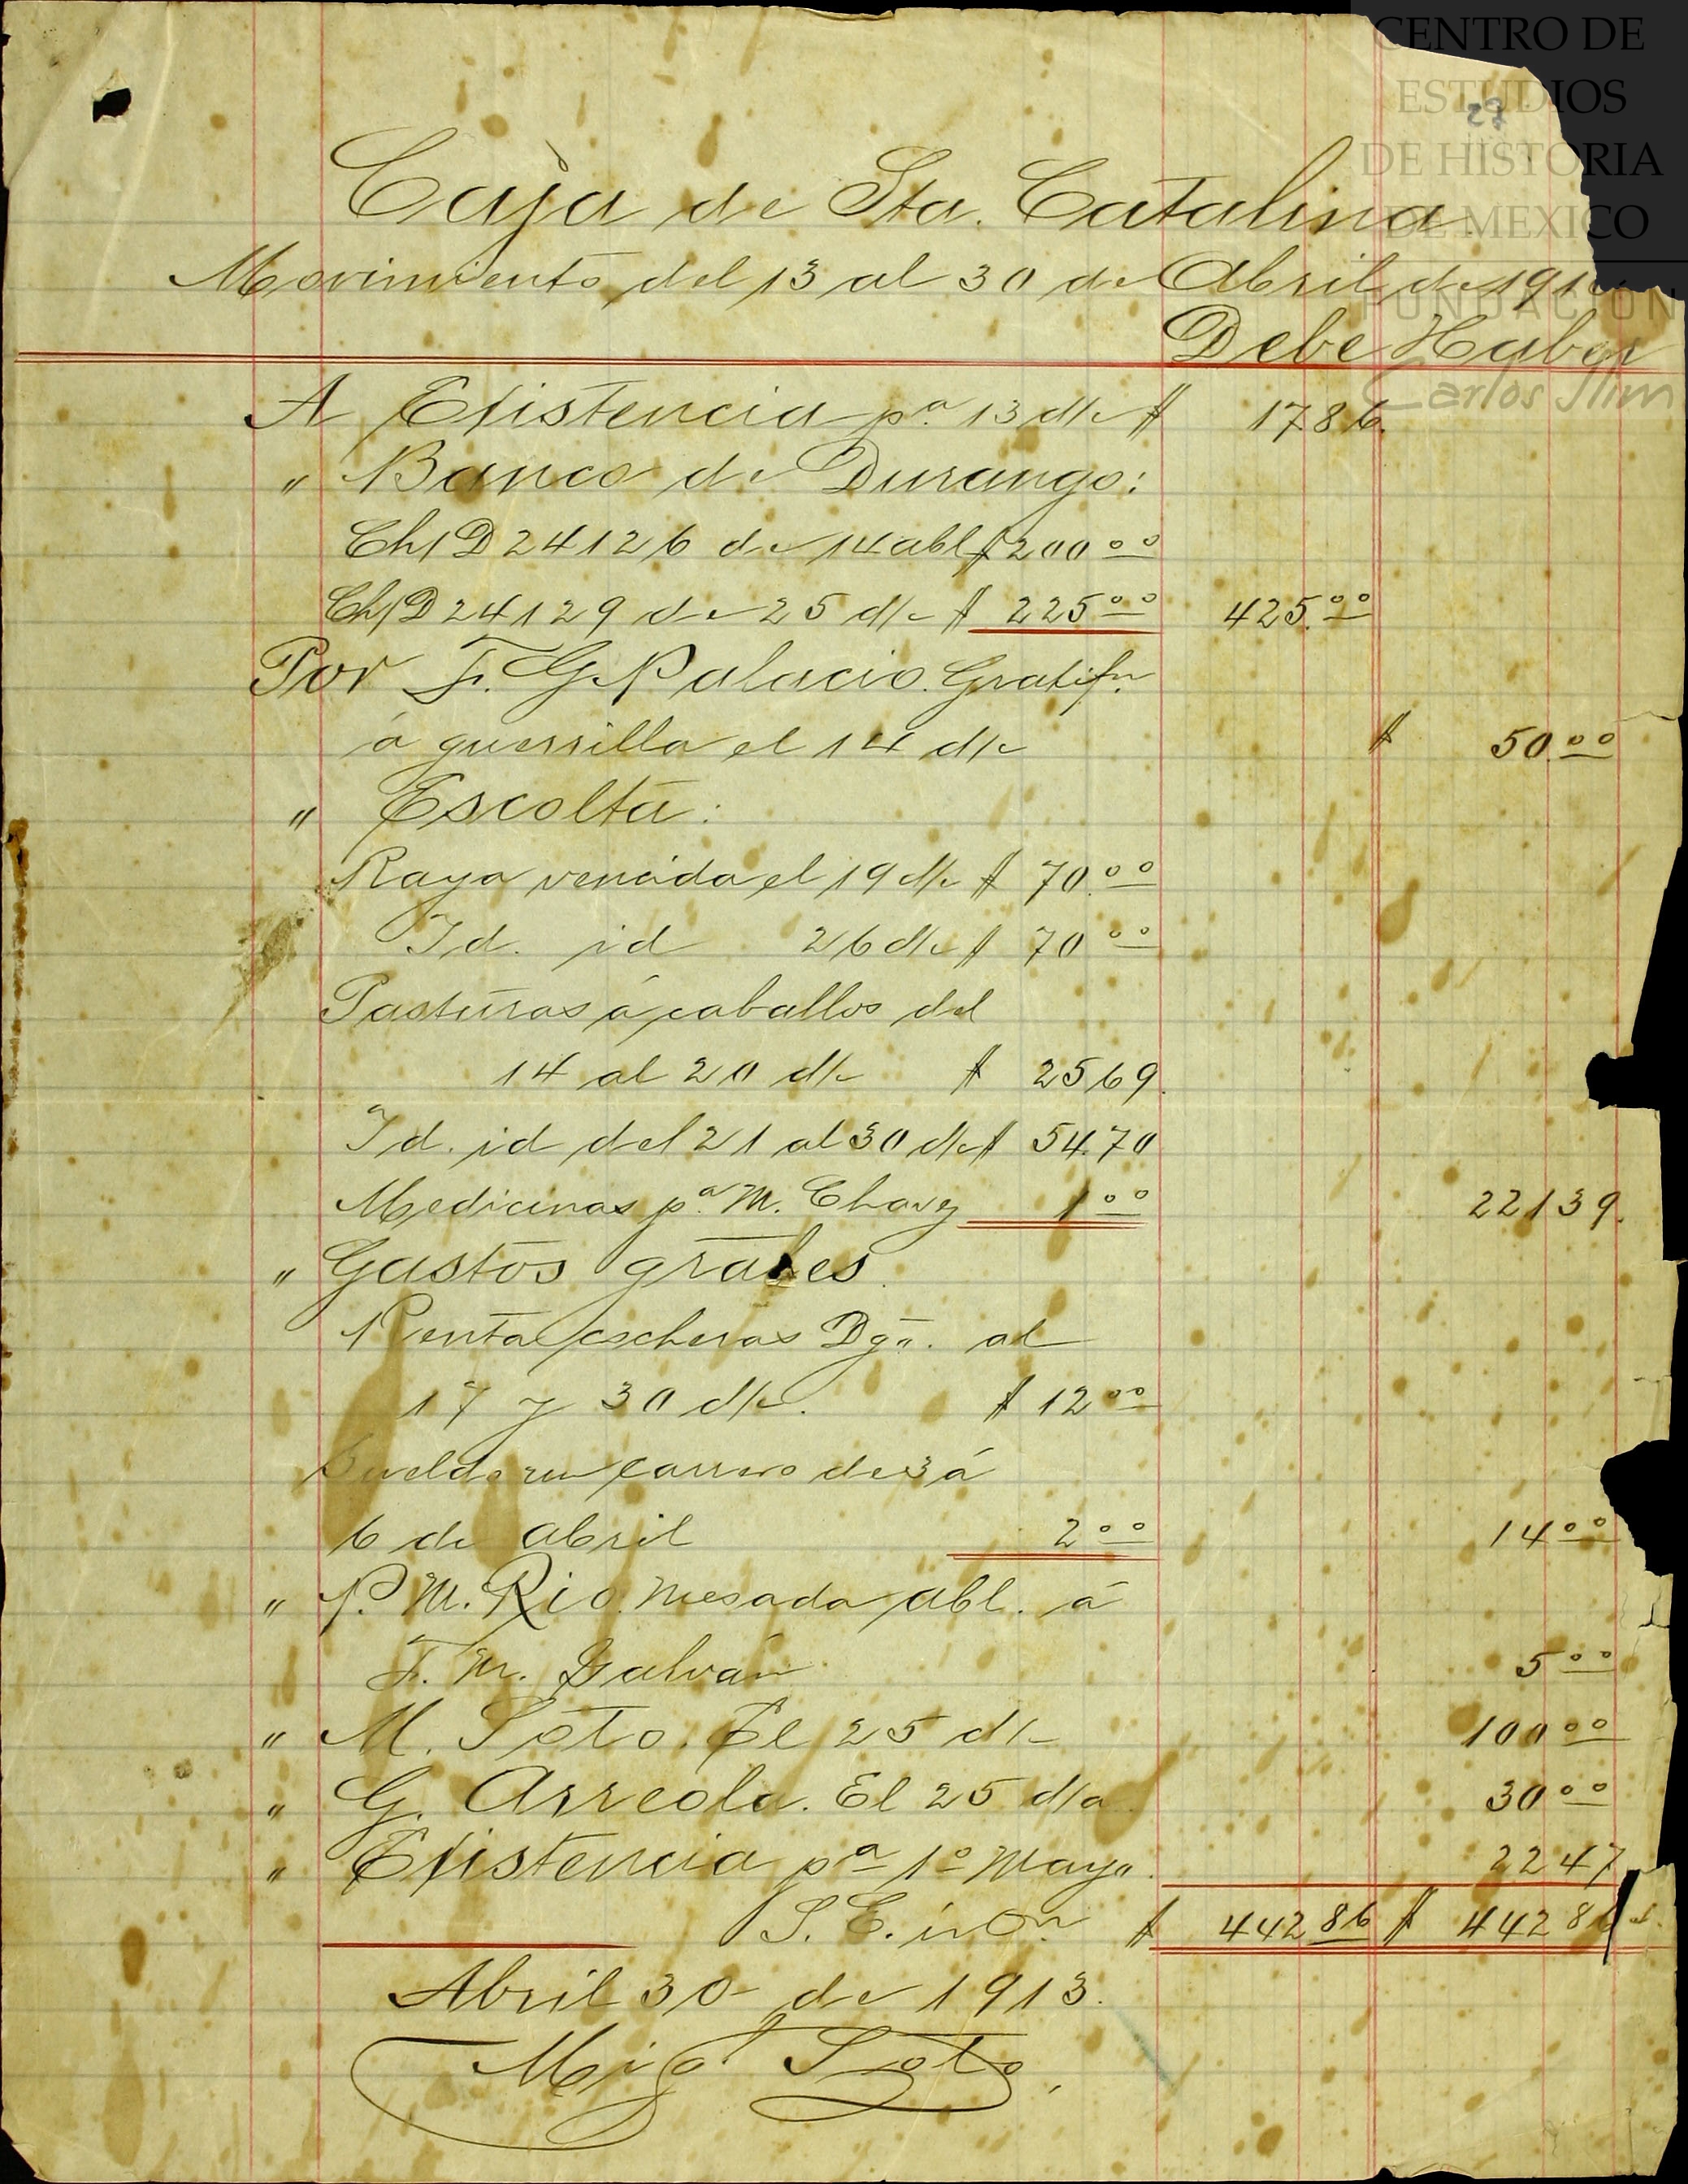 CENTRO DE
ESTUDIOS
DE HISTORIA
DE MEXICO
FUNDACION
Carlos Slim
Caja de Sta. Catalina
Movimiento del 13 al 30 de Abril de 191
Debe Haber
A Existencia pª. 13 d/c $ 1786.
" Banco de Durango:
Ch/D 24126 de 14 abl $ 200.00
Ch/D 24129 de 25 d/c $ 225.00 425.00
Por F. G. Palacio. Gratifn.
á guerrilla el 14 d/c $ 50.00
" Escolta:
Raya vencida el 19 d/c $ 70.00
Id. id 26 d/c $ 70.00
Pasturas á caballos del
14 al 20 d/c $ 25 69.
Id. id del 21 al 30 d/c $ 54.70
Medicinas pª. M. Chavez 1 00 221 39.
" Gastos grales.
Renta cocheras Dgo. al
17 y 30 d/c. $ 12 00
Sueldo un carrero de 3 á
6 de abril 2 00 14 00
" P. M. Rio. Mesada abl. á
F. M. Galván 5 00
" M. Soto. El 25 d/c 100 00
" G. Arreola. El 25 d/c 30 00
" Existencia pª 1º Mayo. 22 47
S. E. ú On. $ 442 86 $ 442 86
Abril 30 de 1913.
Migl Soto